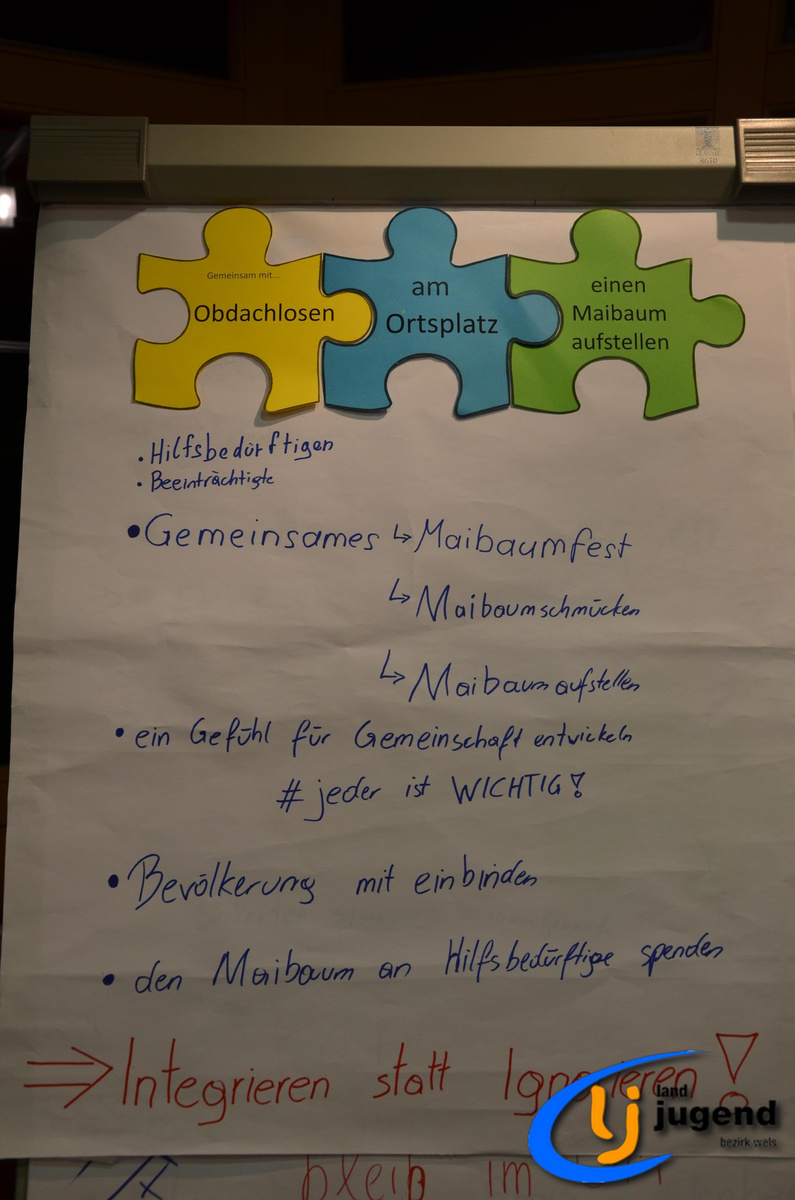 Gemeinsam mit...
Obdachlosen
am
Ortsplatz
einen
Maibaum
aufstellen
• Hilfsbedürftigen
• Beeinträchtigte
• Gemeinsames ↳ Maibaumfest
↳ Maibaumschmücken
↳ Maibaum aufstellen
• ein Gefühl für Gemeinschaft entwickeln
# jeder ist WICHTIG!
• Bevölkerung mit einbinden
• den Maibaum an Hilfsbedürftige spenden
⇒ Integrieren statt Ignorieren!
lj land
jugend
bezirk wels
bleib im